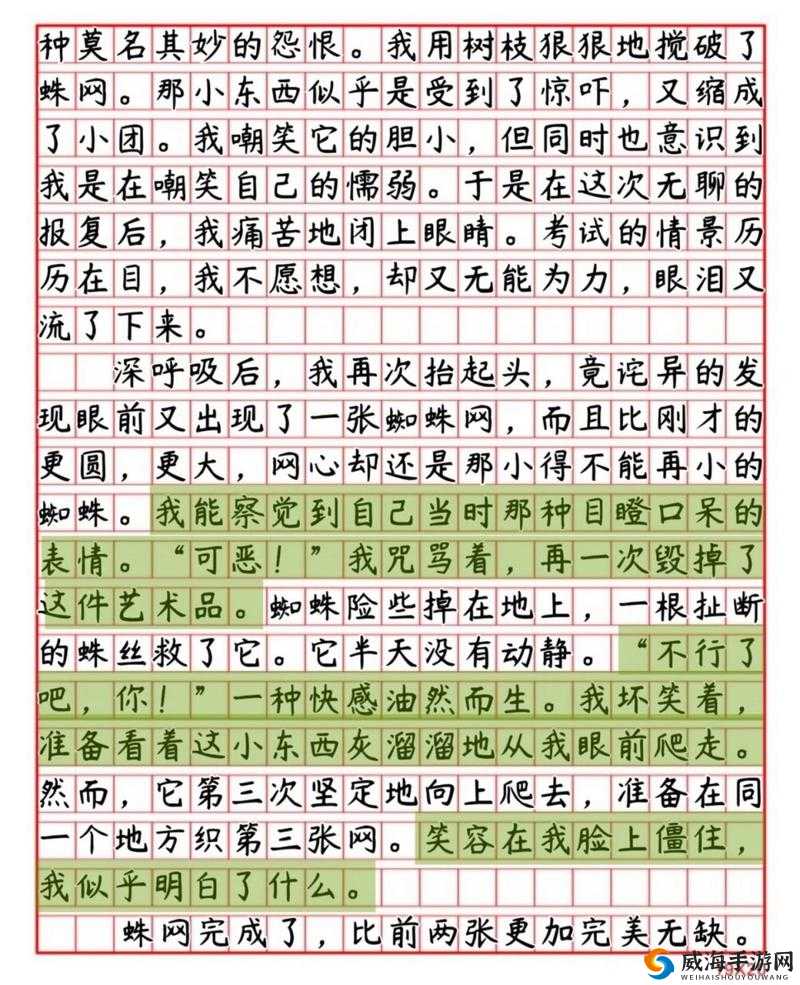 种莫名其妙的怨恨。我用树枝狠狠地搅破了
蛛网。那小东西似乎是受到了惊吓，又缩成
了小团。我嘲笑它的胆小，但同时也意识到
我是在嘲笑自己的懦弱。于是在这次无聊的
报复后，我痛苦地闭上眼睛。考试的情景历
历在目，我不愿想，却又无能为力，眼泪又
流了下来。
深呼吸后，我再次抬起头，竟诧异的发
现眼前又出现了一张蜘蛛网，而且比刚才的
更圆，更大，网心却还是那小得不能再小的
蜘蛛。我能察觉到自己当时那种目瞪口呆的
表情。“可恶！”我咒骂着，再一次毁掉了
这件艺术品。蜘蛛险些掉在地上，一根扯断
的蛛丝救了它。它半天没有动静。“不行了
吧，你！”一种快感油然而生。我坏笑着，
准备看着这小东西灰溜溜地从我眼前爬走。
然而，它第三次坚定地向上爬去，准备在同
一个地方织第三张网。笑容在我脸上僵住，
我似乎明白了什么。
蛛网完成了，比前两张更加完美无缺。
威海手游网
WEIHAISHOUYOUWANG